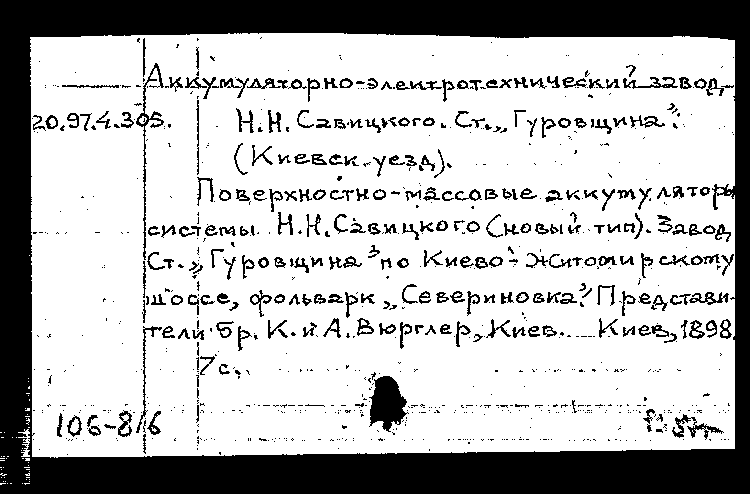 Аккумуляторно-электротехнический завод
20.97.4.305. Н.Н. Савицкого. Ст. „Гуровщина”.
(Киевск. уезд).
Поверхностно-массовые аккумуляторы
системы Н.Н. Савицкого (новый тип). Завод
Ст. „Гуровщина” по Киево-Житомирскому
шоссе, фольварк „Севериновка”. Представи-
тели бр. К. и А. Вюрглер, Киев. Киев, 1898.
7 с.
106-816